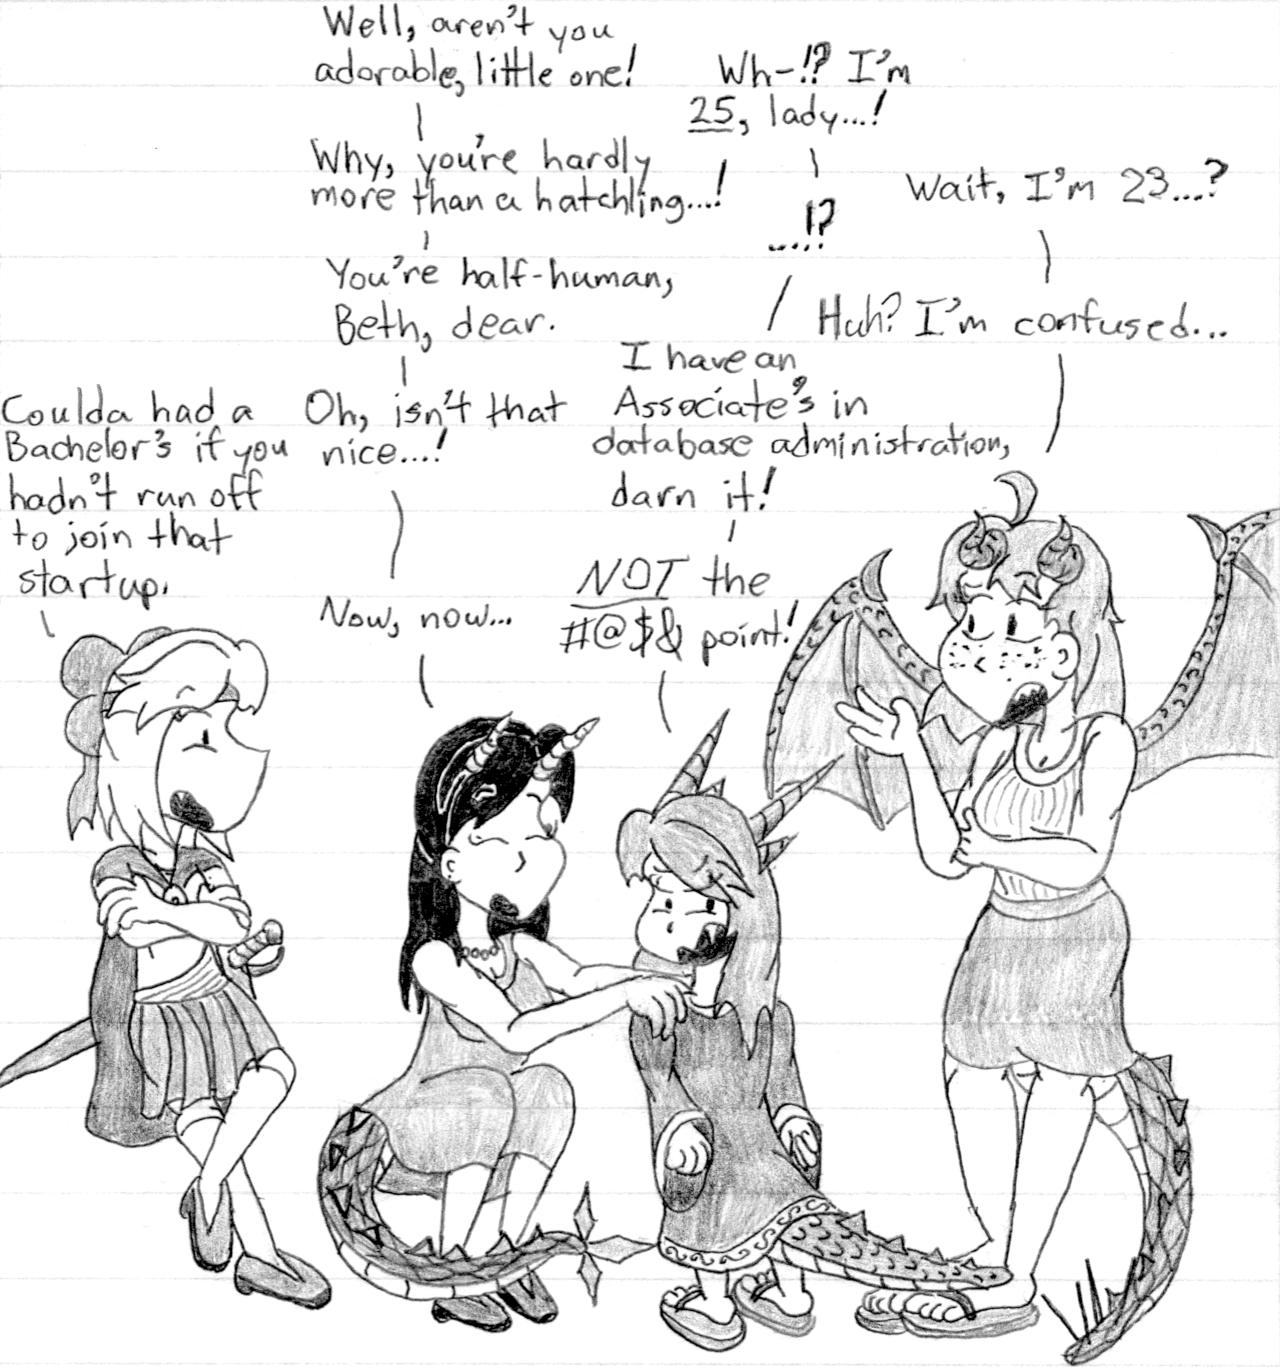 Well, aren't you
adorable, little one!
Wh-!? I'm
25, lady...!
Why, you're hardly
more than a hatchling...!
....!?
Wait, I'm 23....?
You're half-human,
Beth, dear.
Huh? I'm confused...
I have an
Associate's in
database administration,
darn it!
Oh, isn't that
nice...!
Coulda had a
Bachelor's if you
hadn't run off
to join that
startup.
Now, now...
NOT the
#@$& point!